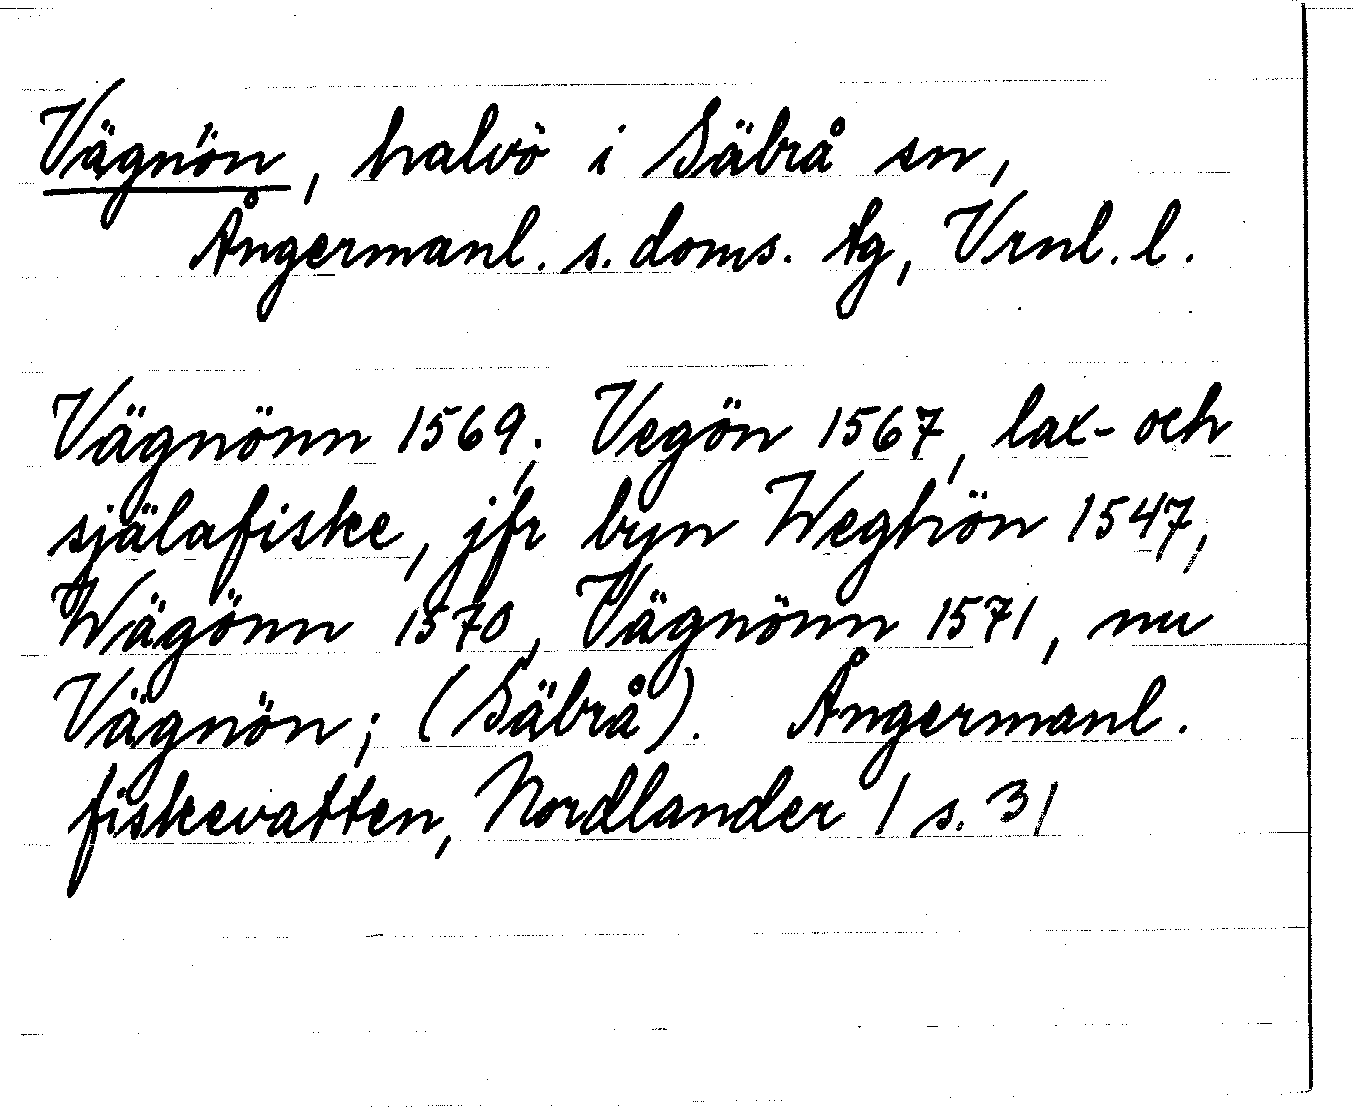 Vägnön, halvö i Säbrå sn,
Ångermanl. s. doms. tg, Vrnl. l.
Vägnönn 1569; Vegön 1567, lax- och
själafiske, jfr byn Weghön 1547,
Wägönn 1570, Vägnönn 1571, nu
Vägnön; (Säbrå). Ångermanl.
fiskevatten, Nordlander 1 s. 31